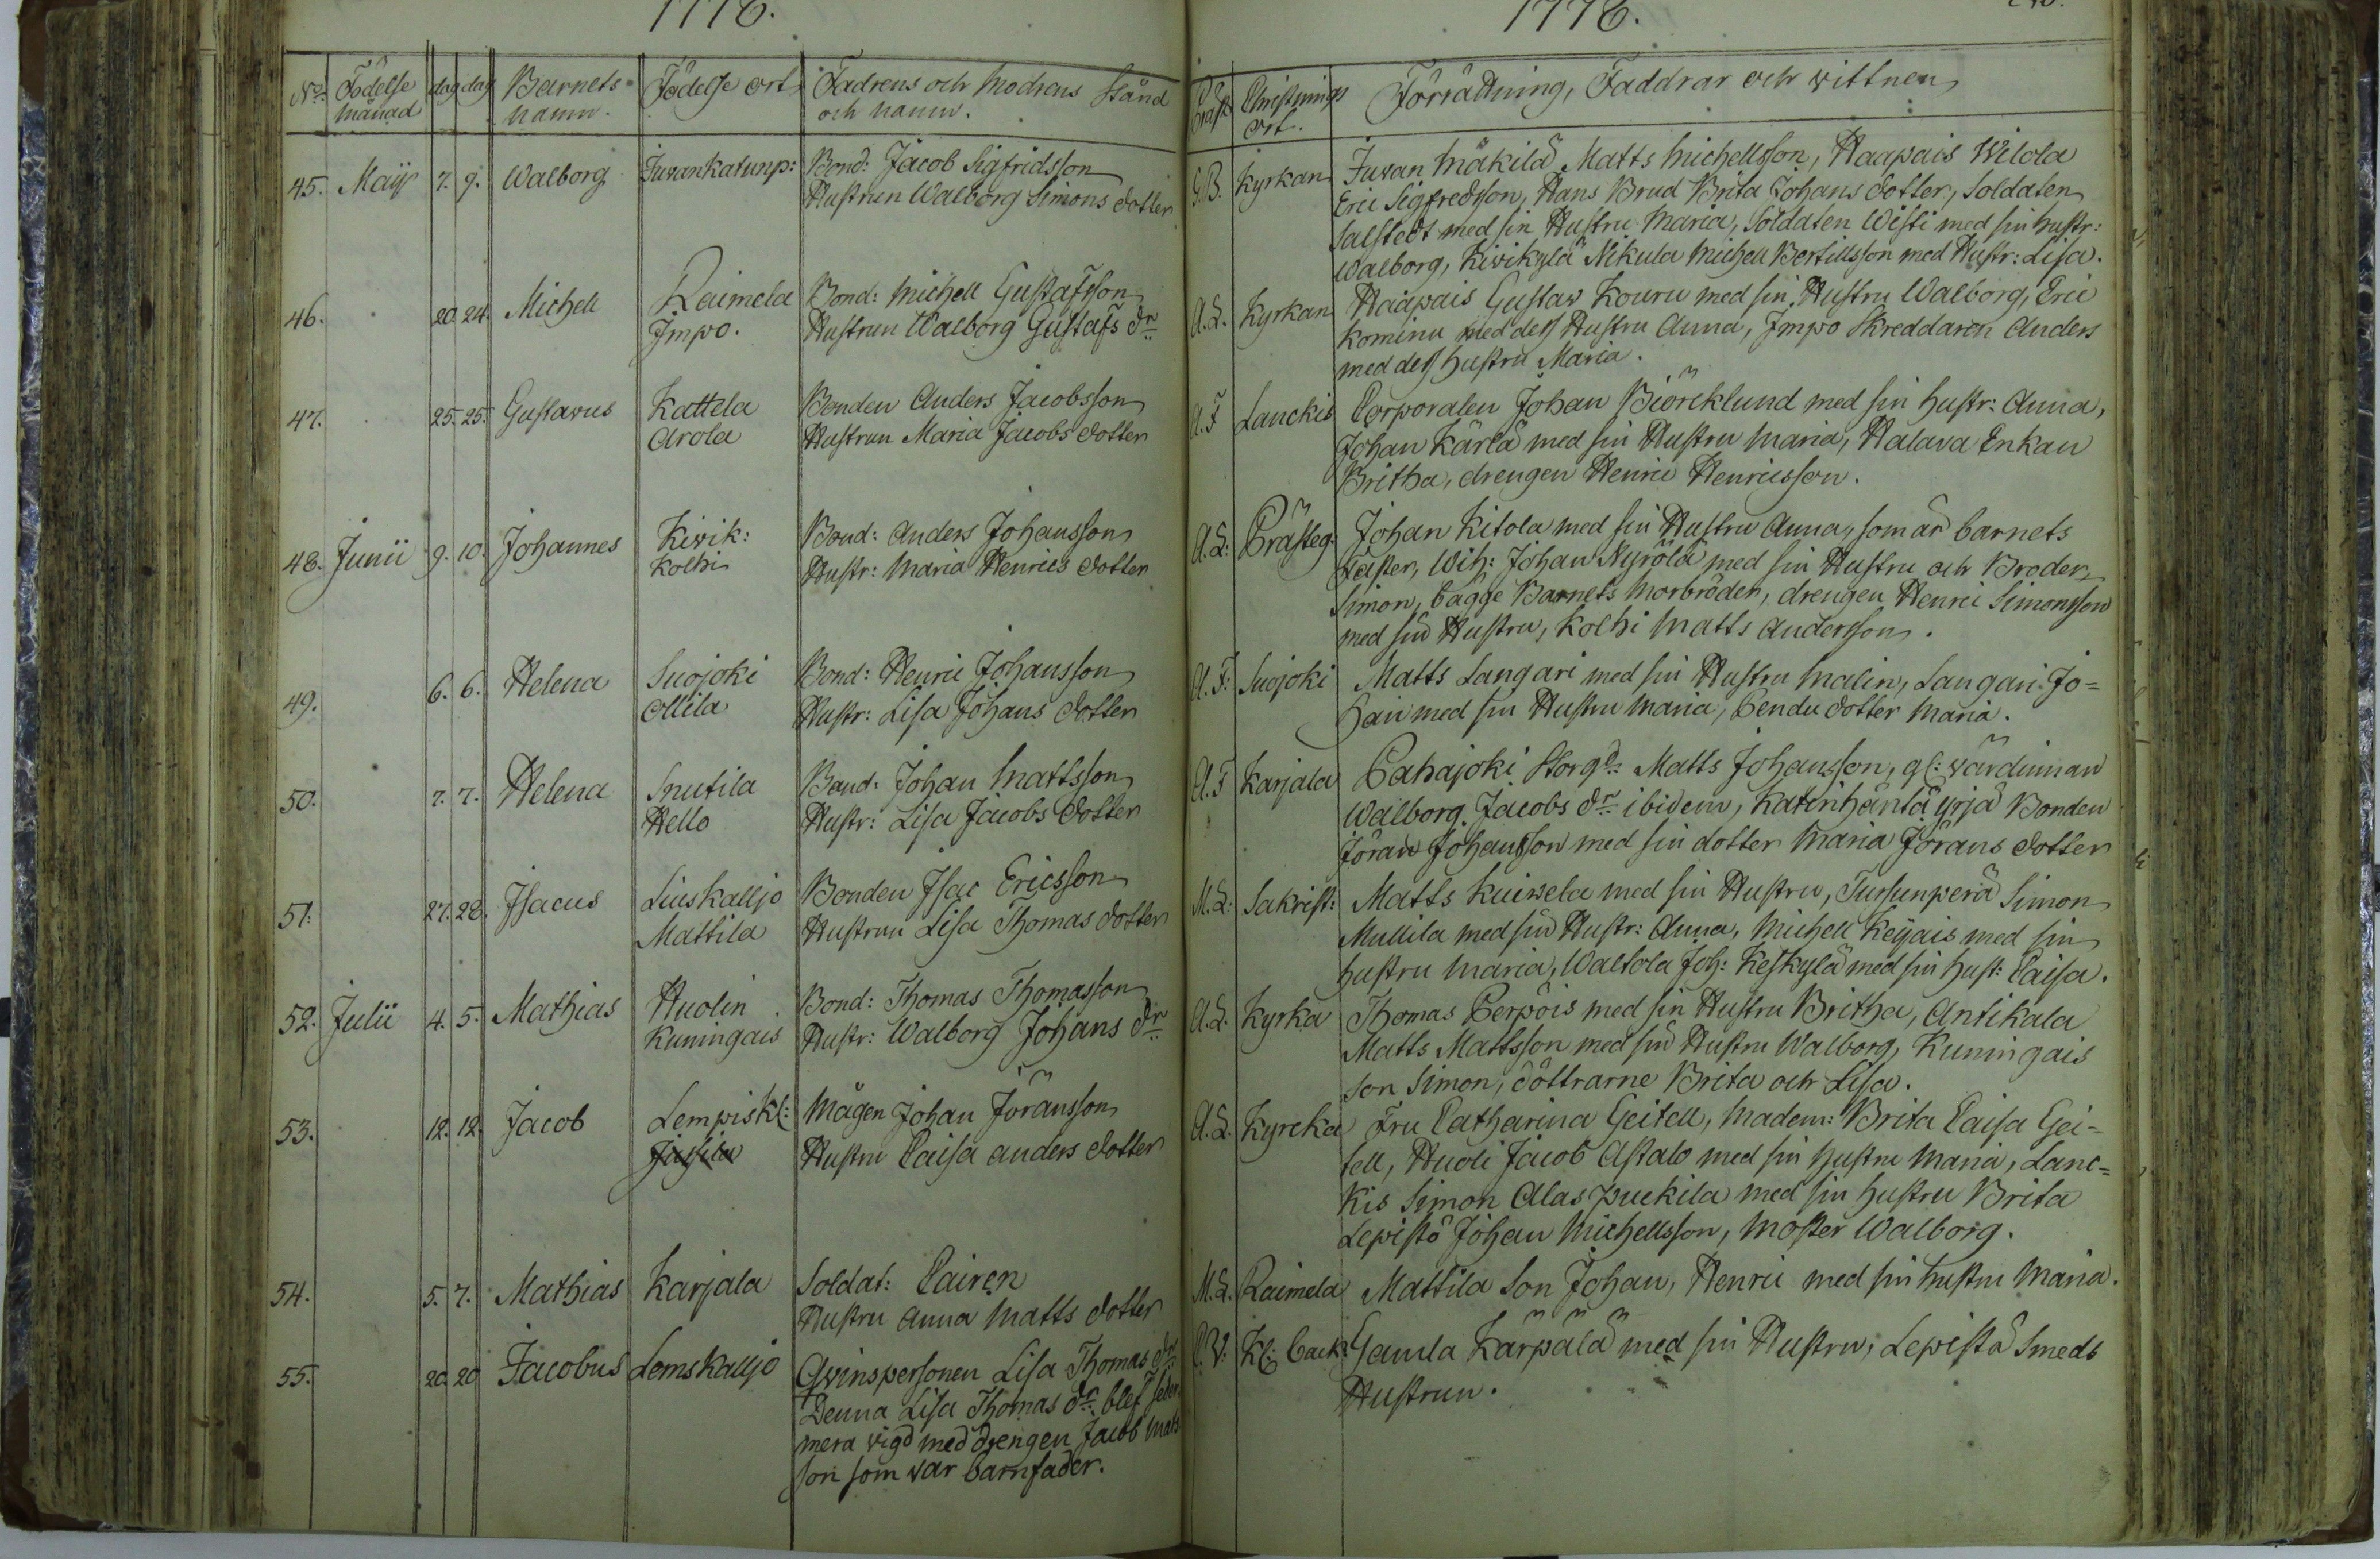 1776.
No. Födelse månad dag dag Barnets namn. Födelse ort Fadrens och Modrens Stånd och namn.
45. Maij 7. 9. Walborg Juvankatunp: Bond: Jacob Sigfridsson
Hustrun Walborg Simons dotter
46. 20. 24. Michell Raimela Bond: Michell Gustafsson
Impo. Hustrun Walborg Gustafs dr
47. 25. 25. Gustavus Kattela Bonden Anders Jacobsson
Arola Hustrun Maria Jacobs dotter
48. Junii 9. 10. Johannes Kivik: Bond: Anders Johansson
Kolhi Hustr: Maria Henrics dotter
49. 6. 6. Helena Suojoki Bond: Henric Johansson
Ollila Hustr: Lisa Johans dotter
50. 7. 7. Helena Snutila Bond: Johan Mattsson
Hello Hustr: Lisa Jacobs dotter
51. 27. 28. Isacus Linskalljo Bonden Isac Ericsson
Mattila Hustrun Lisa Thomas dotter
52. Julii 4. 5. Mathias Huolin Bond: Thomas Thomasson
Kuningais Hustr: Walborg Johans dr
53. 12. 12. Jacob Lempiskl: Mågen Johan Jöransson
Hustru Caisa Anders dotter
54. 5. 7. Mathias Karjala Soldat: Cairen
Hustru Anna Matts dotter
55. 20 20 Jacobus Lemskalljo Qvinspersonen Lisa Thomas dr
Denna Lisa Thomas dr blef seder
mera vigd med drengen Jacob Mats
son som var barnfader.
1776.
Präst Christnings ort. Förrättning, Faddrar och vittnen
G.B. Kyrkan Juvan Mäkilä Matts Michellsson, Haapais Wilola
Eric Sigfredsson, Hans Brud Brita Johans dotter, Soldaten
Salstedt med sin Hustru Maria, Soldaten Wisti med sin hustr:
Walborg, Kivikylä Nikula Michell Bertillsson med Hustr: Lisa.
A.L. Kyrkan Haapais Gustav Kouru med sin Hustru Walborg, Eric
Kominu med dess Hustru Anna, Impo Skreddaren Anders
med dess hustru Maria.
A.F Lanckis Corporalen Johan Biörcklund med sin hustr: Anna,
Johan Kärlä med sin Hustru Maria, Halava Enkan
Britha, drengen Henric Henricsson.
A.L: Prästeg. Johan Kitola med sin Hustru Anna, som är barnets
Faster, Wih: Johan Nyrölä med sin Hustru och Broder
Simon, bägge Barnets Morbröder, drengen Henric Simonsson
med sin Hustru, Kolhi Matts Andersson.
A.F: Suojoki Matts Langari med sin Hustru Malin, Langari Jo=
han med sin Hustru Maria, Bendu dotter Maria.
A.F Karjala Pahajoki Storgd: Matts Johansson, gl: värdinnan
Walborg Jacobs dr ibidem, Katinhäntä Yrjä Bonden
Jöran Johansson med sin dotter Maria Jörans dotter
M.L: Sakrist: Matts Kuiwela med sin Hustru, Tursunperä Simon
Mullila med sin Hustr: Anna, Michell Keijais med sin
hustru Maria, Waltola Joh: Keskylä med sin hust: Caisa.
A.L. Kyrka Thomas Perpöis med sin Hustru Britha, Antikala
Matts Mattsson med sin Hustru Walborg, Kuningais
son Simon, döttrarne Brita och Lisa.
A.L. Kyrcka Fru Catharina Geitell, Madem: Brita Caisa Gei=
tell, Huoli Jacob Astalo med sin hustru Maria, Lanc=
kis Simon Alaspuckila med sin hustru Brita
Lepistö Johan Michellsson, Moster Walborg.
M.L. Raimela Mattila Son Johan, Henric med sin hustru Maria.
Kl: back: Gamla Kärpälä med sin Hustru, Lepistä Smeds
Hustrun.